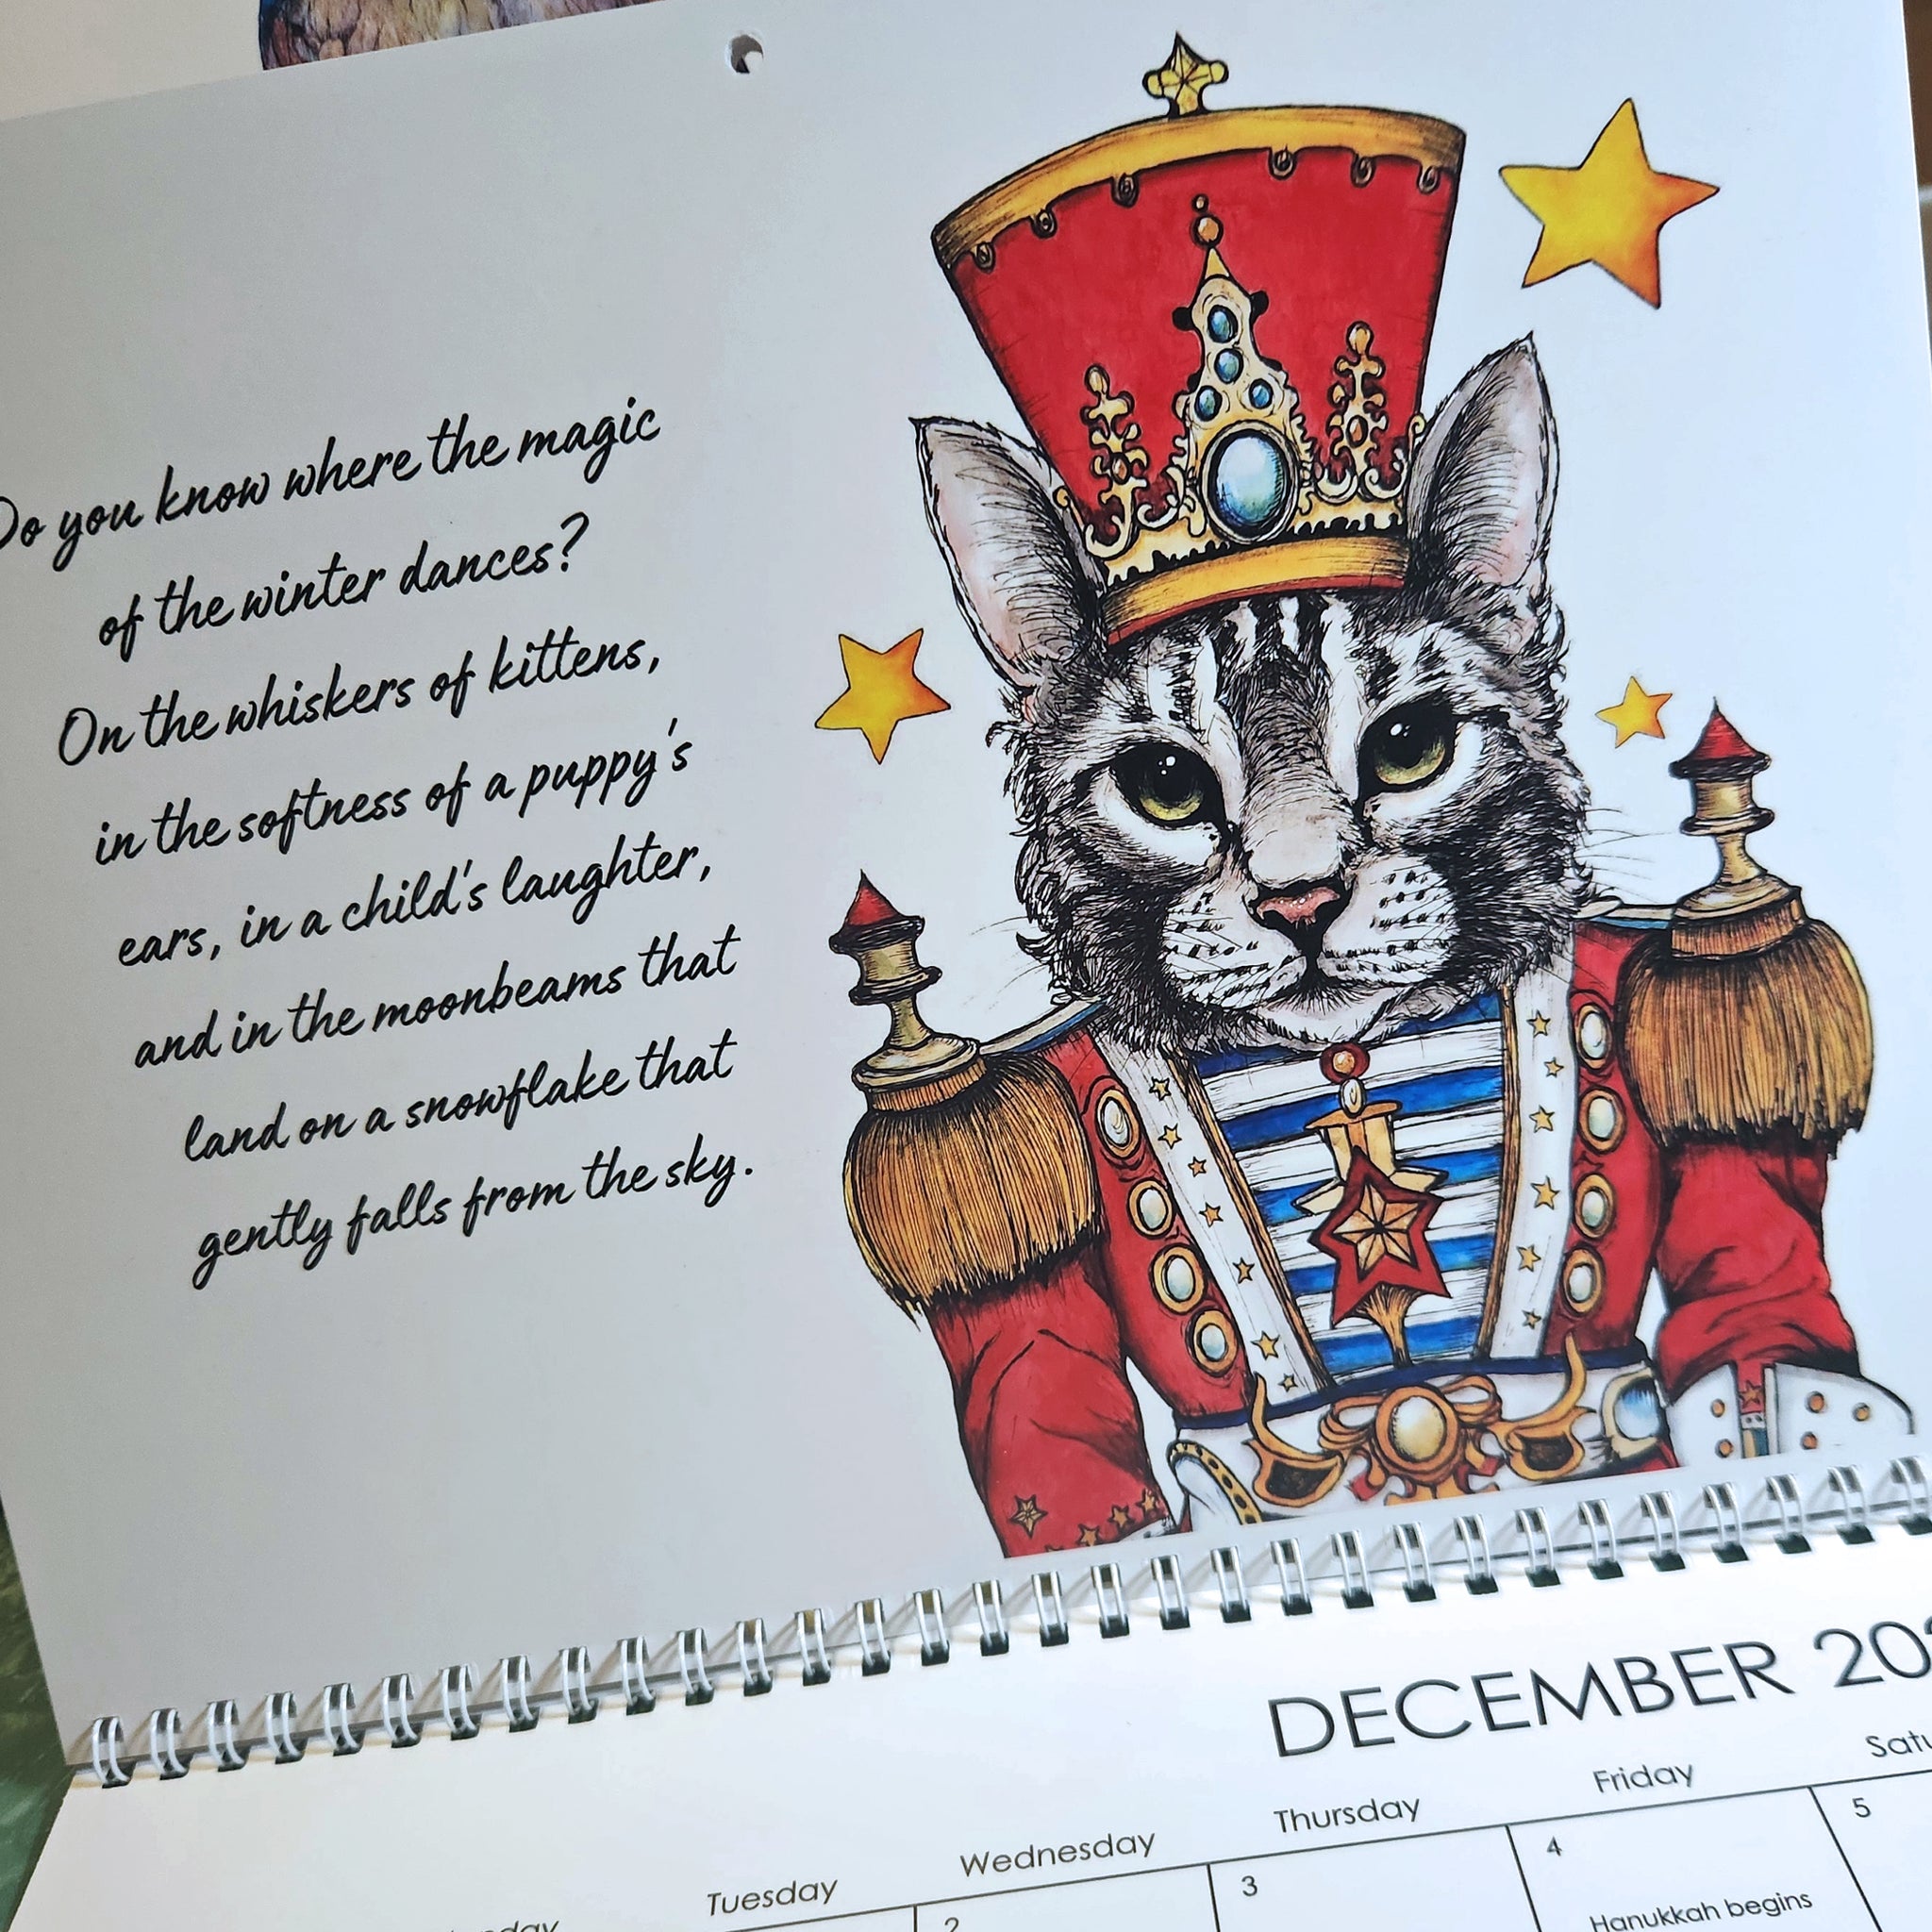 Do you know where the magic
of the winter dances?
On the whiskers of kittens,
in the softness of a puppy's
ears, in a child's laughter,
and in the moonbeams that
land on a snowflake that
gently falls from the sky.
DECEMBER
Tuesday Wednesday Thursday Friday
2 3 4 5
Hanukkah begins